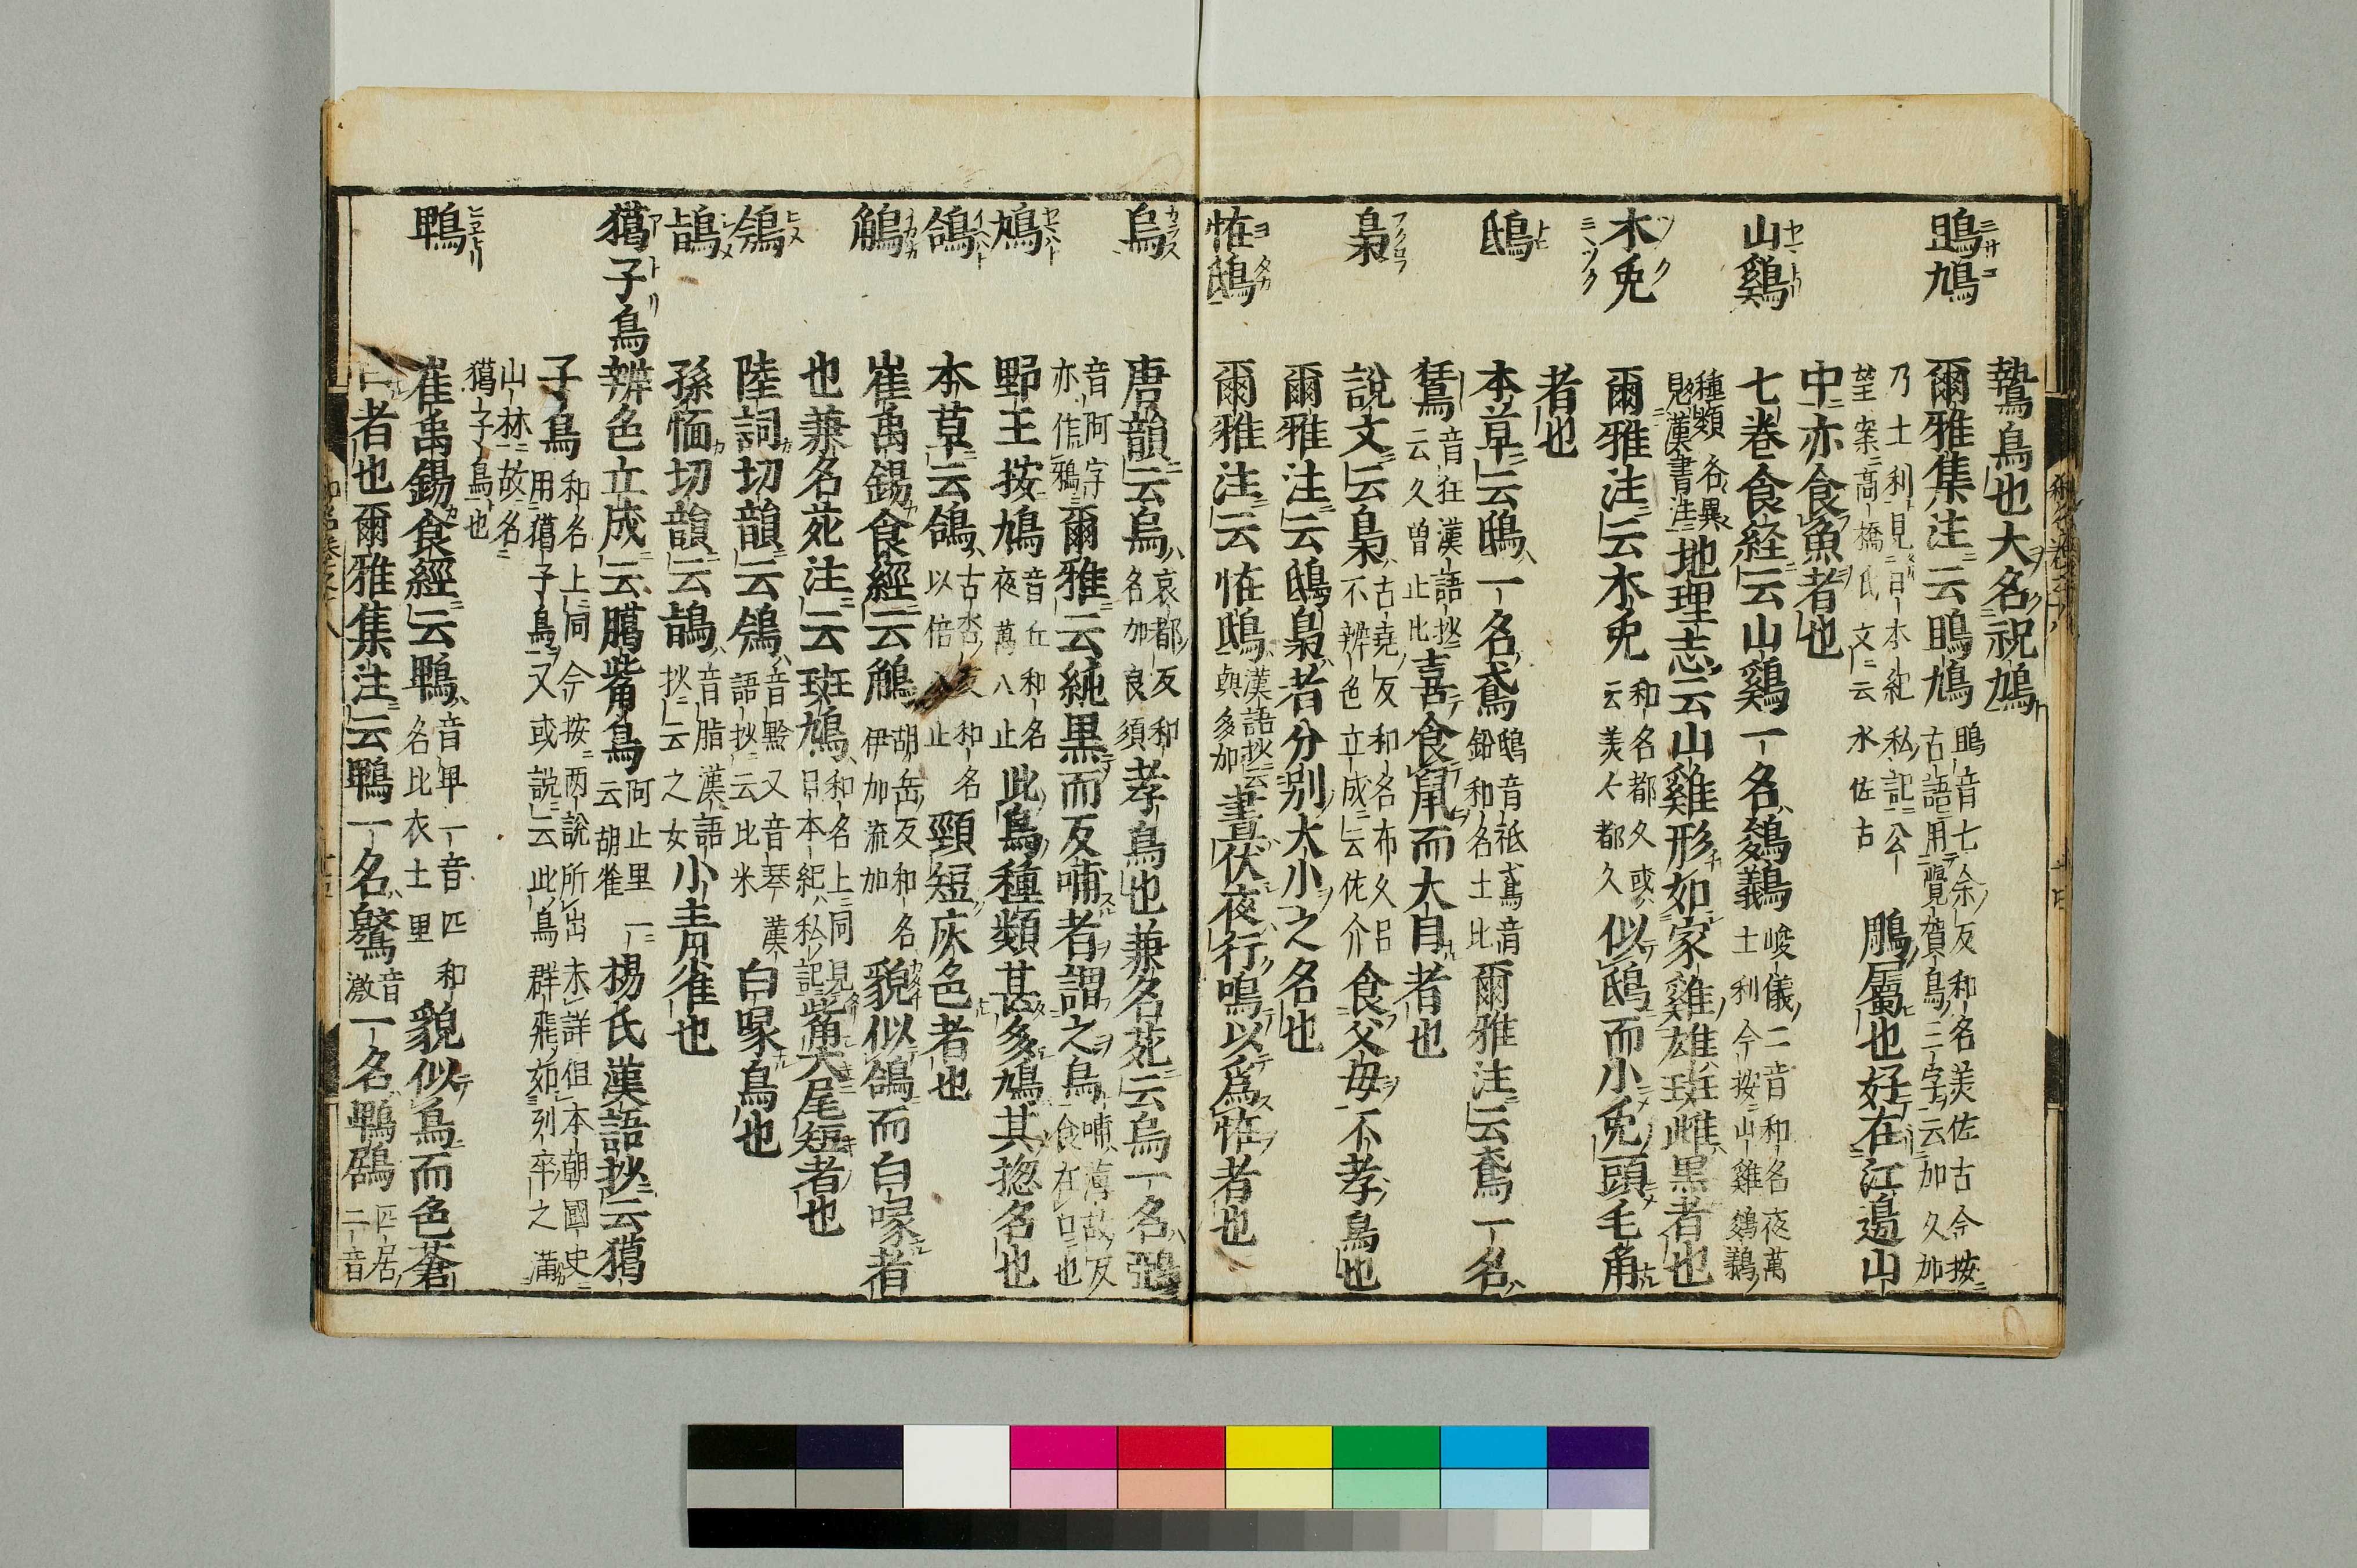 鷙鳥也大名祝鳩
鵙鳩 爾雅集注云鵙鳩 鵙音七余反和名美佐古今按古語用覺賀鳥三字云加久加
乃土利見日本紀私記公望案高橋氏文云水佐古 鵰屬也好在江邊山
中亦食魚者也
山鷄 七巻食経云山鷄一名鵔鸃 峻儀二音和名夜萬土利今按山雞鵔鸃
種類各異見漢書注 地理志云山雞形如家雞雄斑雌黒者也
木兎 爾雅注云木兎 和名都久或云美々都久 似鴟而小兎頭毛角
者也
鴟 本草云鴟一名鳶 鴟音祗鳶音鉛和名土比 爾雅注云鳶一名
鵟 音狂漢語抄云久曽止比 喜食鼠而大自者也
梟 說文云梟 古堯反和名布久呂不辨色立成云佐介 食父母不孝鳥也
爾雅注云鴟梟者分別大小之名也
恠鴟 爾雅注云恠鴟 漢語抄云與多加 晝伏夜行鳴以爲恠者也
烏 唐韻云烏 哀都反和名加良須 孝鳥也兼名苑云烏一名鵶
音阿字亦作鴉 爾雅云純黒而反哺者謂之烏 哺薄故反食在口也
鳩 野王按鳩 音丘和名夜萬八止 此鳥種類甚多鳩其揔名也
鴿 本草云鴿 和名以倍八止 頸短灰色者也
鵤 崔禹錫食經云鵤 胡岳反和名伊加流加 貌似鴿而白喙者
也兼名苑注云斑鳩 和名上同見日本紀私記 觜大尾短者也
鳹 陸詞切韻云鳹 音黔又音琴漢語抄云比米 白喙鳥也
鴲 孫愐切韻云鴲 音脂漢語抄云之女 小青雀也
獦子鳥 辨色立成云臈觜鳥 阿止里一云胡雀 楊氏漢語抄云獦
子鳥 和名上同今按両說所出未詳但本朝國史用獦子鳥又或說云此鳥群飛如列卒之滿
山林故名獦子鳥也
鵯 崔禹錫食經云鵯 音卑一音匹和名比衣土里 貌似烏而色蒼
白者也爾雅集注云鵯一名鸒 音激 一名鵯鶋 匹居二音